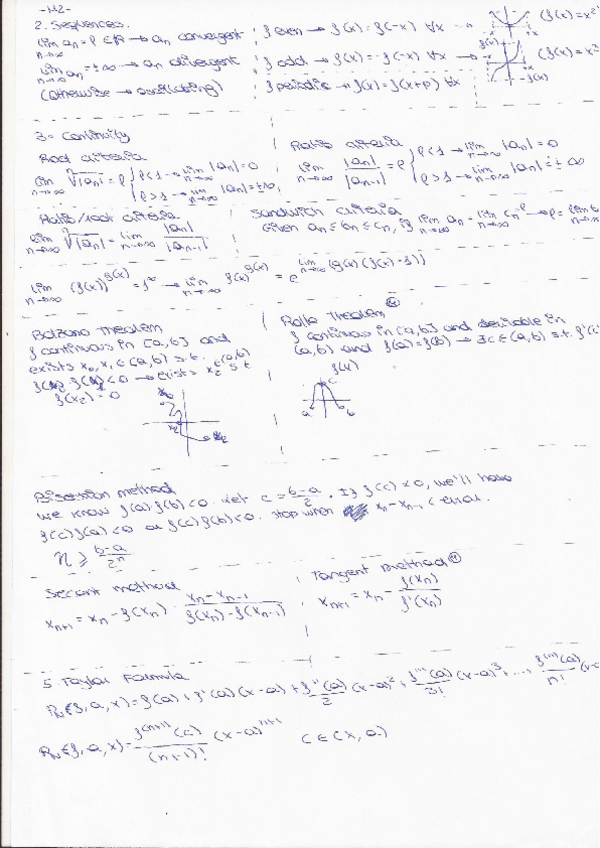 -M2-
2. Sequences.
lim n→∞ an = ℓ ∈ ℝ → an convergent
lim n→∞ an = ±∞ → an divergent
(otherwise → oscillating)
f even → f(x) = f(-x) ∀x
(f(x)=x²
f odd → f(x) = -f(-x) ∀x
(f(x)=x³
f periodic → f(x) = f(x+p) ∀x
-f(x)
3- Continuity
Root criteria
lim n→∞ ⁿ√|an| = ℓ { ℓ<1 → lim n→∞ |an| = 0
ℓ>1 → lim n→∞ |an| = ±∞
Ratio criteria
lim n→∞ |an|/|an-1| = ℓ { ℓ<1 → lim n→∞ |an| = 0
ℓ>1 → lim n→∞ |an| = ±∞
Ratio/root criteria
lim n→∞ ⁿ√|an| = lim n→∞ |an|/|an-1|
Sandwich criteria
Given an ≤ bn ≤ cn, if lim n→∞ an = lim n→∞ cn = ℓ → ℓ = lim
lim n→∞ (f(x))^g(x) = 1^∞ → lim n→∞ f(x)^g(x) = e^lim n→∞ (g(x)(f(x)-1))
Bolzano Theorem
f continuous in [a,b] and
exists x0, x1 ∈ (a,b) s.t.
<0 → exists x2 ∈ (a,b) s.t
f(x2) = 0
x2
Rolle Theorem
f continuous in [a,b] and derivable in
(a,b) and f(a)=f(b) → ∃c∈(a,b) s.t. f'(c)
f(x)
c
a b
Bisection method
we know f(a)·f(b)<0. Let c = b-a/2. If f(c) ≠ 0, we'll have
f(c)f(a)<0 or f(c)f(b)<0. Stop when xn - xn-1 < error.
n ≥ b-a/2ⁿ
Secant method
xn+1 = xn - f(xn) · xn - xn-1/f(xn) - f(xn-1)
Tangent Method
xn+1 = xn - f(xn)/f'(xn)
5. Taylor Formula
Pn(f, a, x) = f(a) + f'(a)(x-a) + f''(a)/2 (x-a)² + f'''(a)/3! (x-a)³ + ... f⁽ⁿ⁾(a)/n! (x-a
Rn(f, a, x) = f⁽ⁿ⁺¹⁾(c)/(n+1)! (x-a)ⁿ⁺¹ c ∈ (x, a)